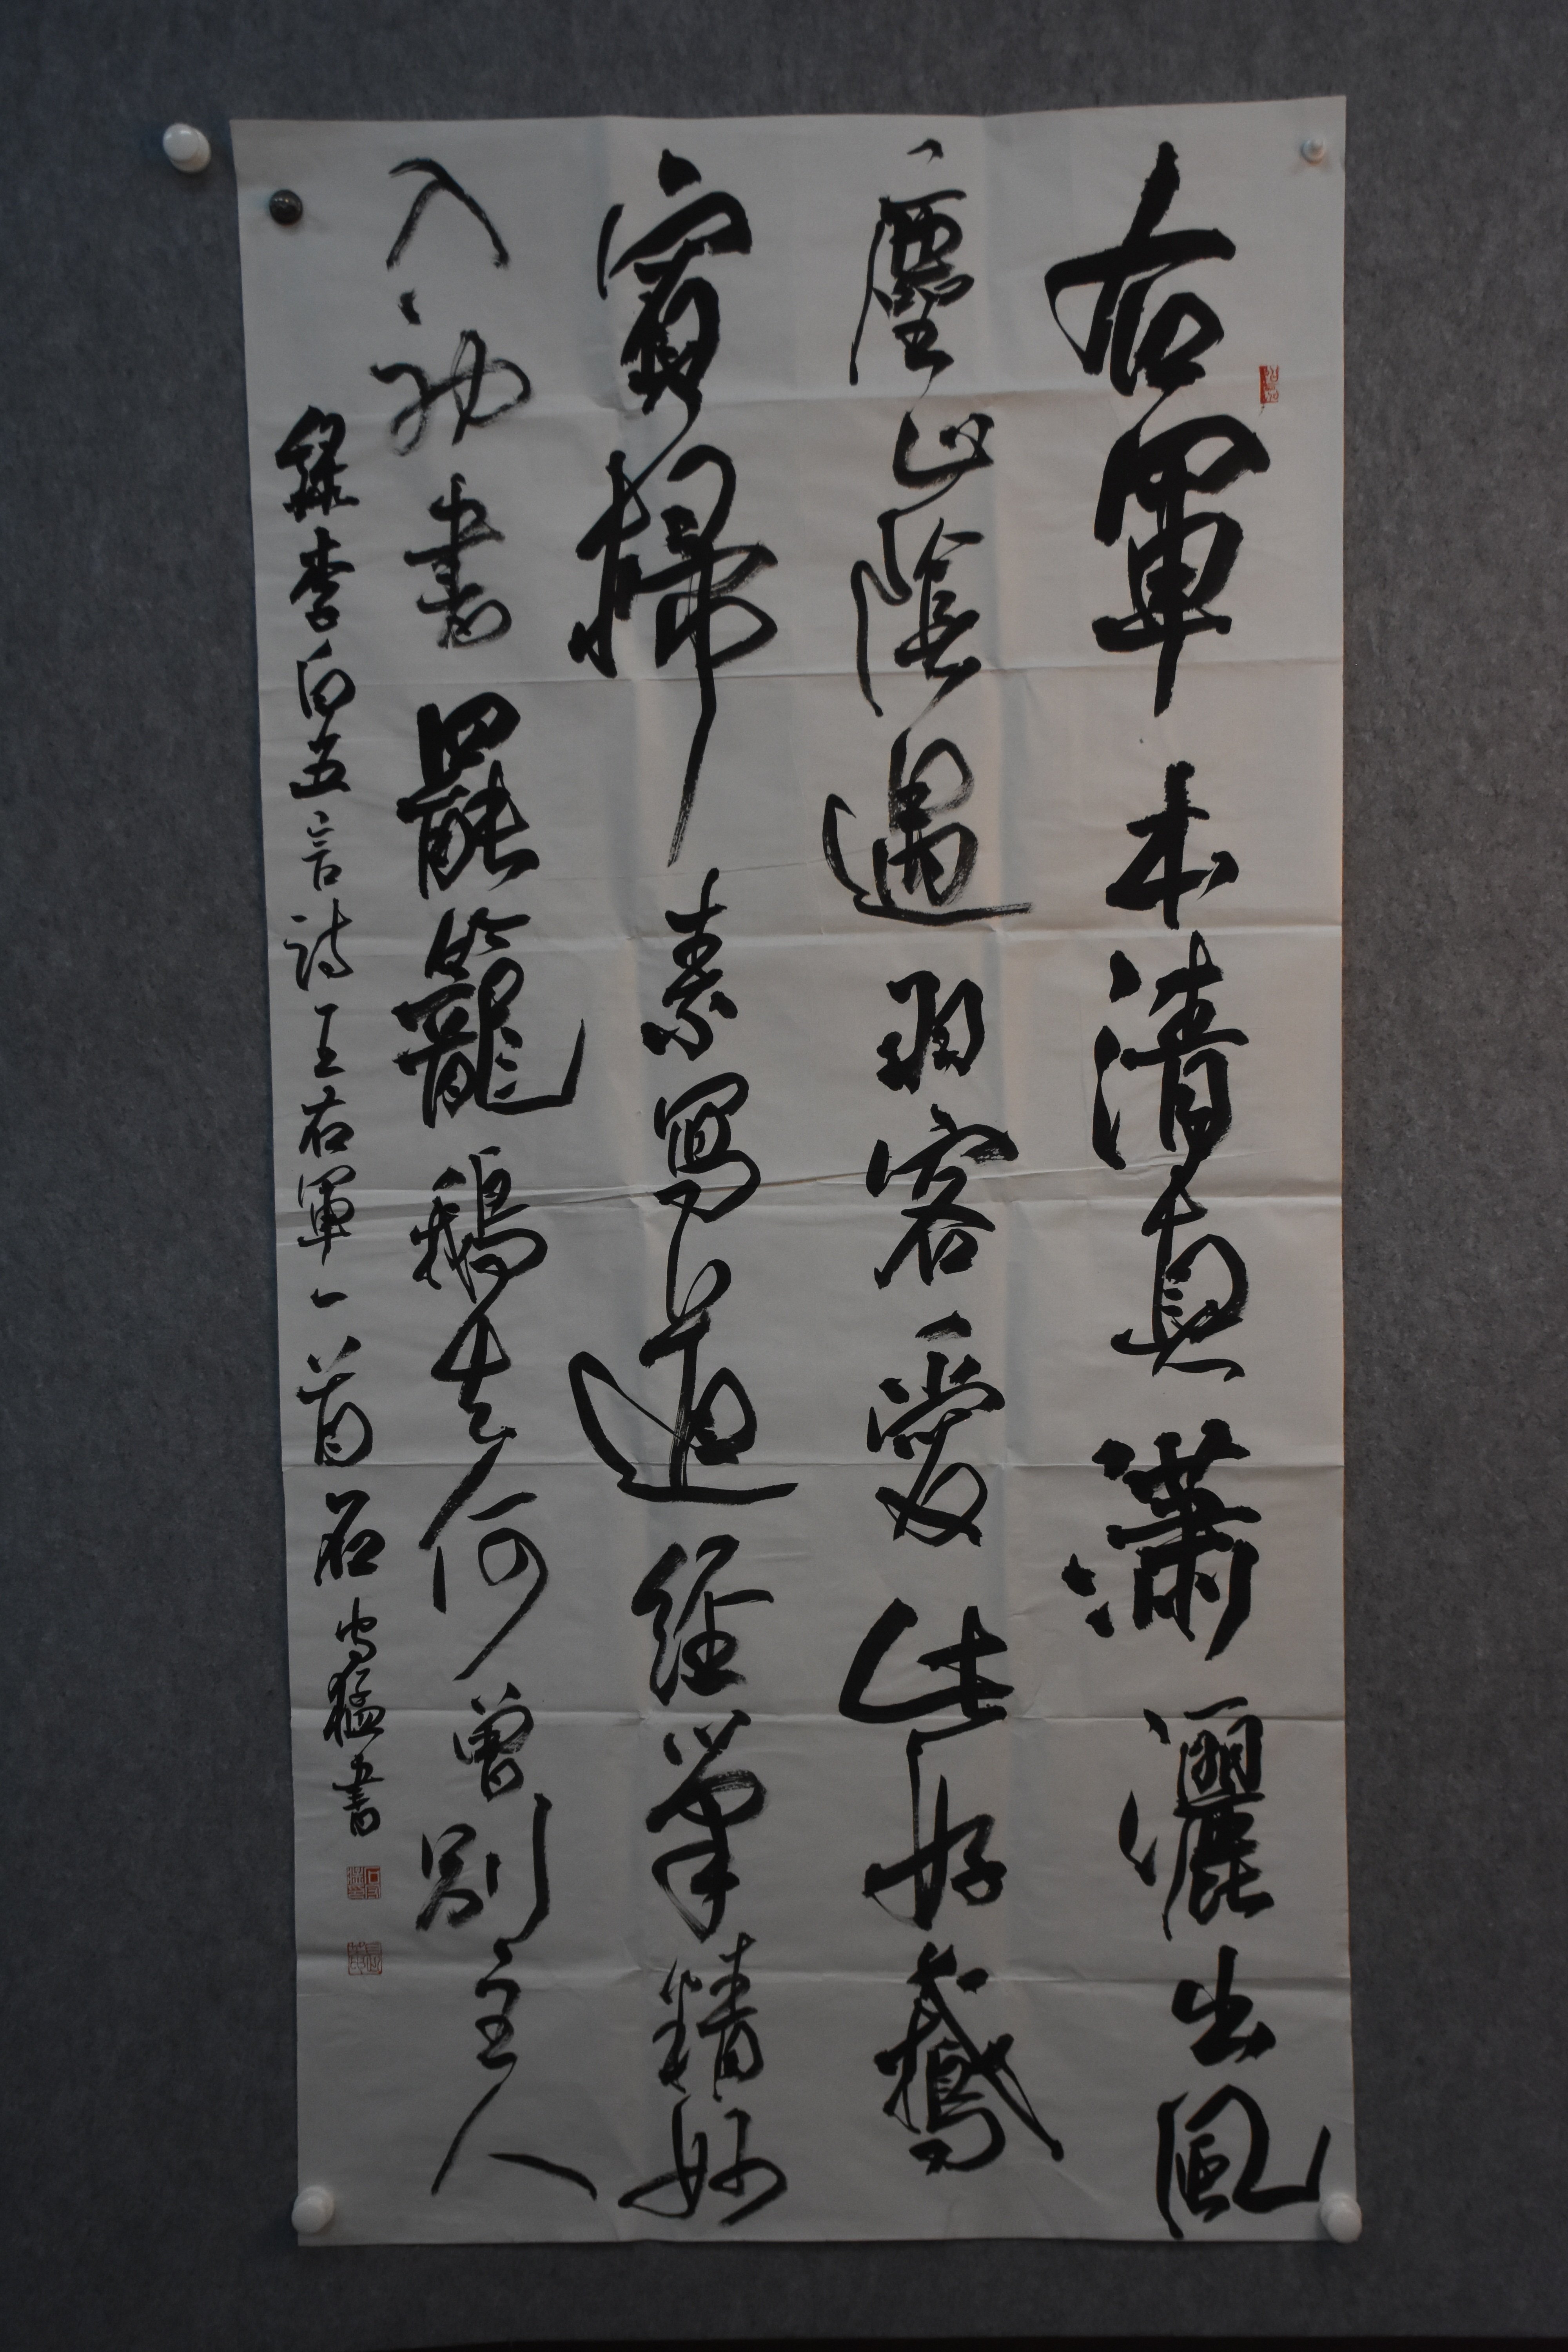 右軍本清真瀟灑出風
塵山陰遇羽客愛此好鵝
賓掃素寫道經筆精妙
入神書罷籠鵝去何曾別主人
錄李白五言詩王右軍一首石守猛書